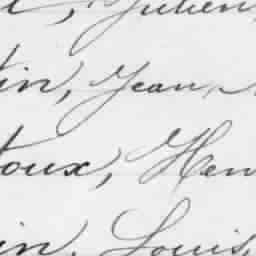 t, Julien,
tin, Jean
toux, Hen
in. Louis,